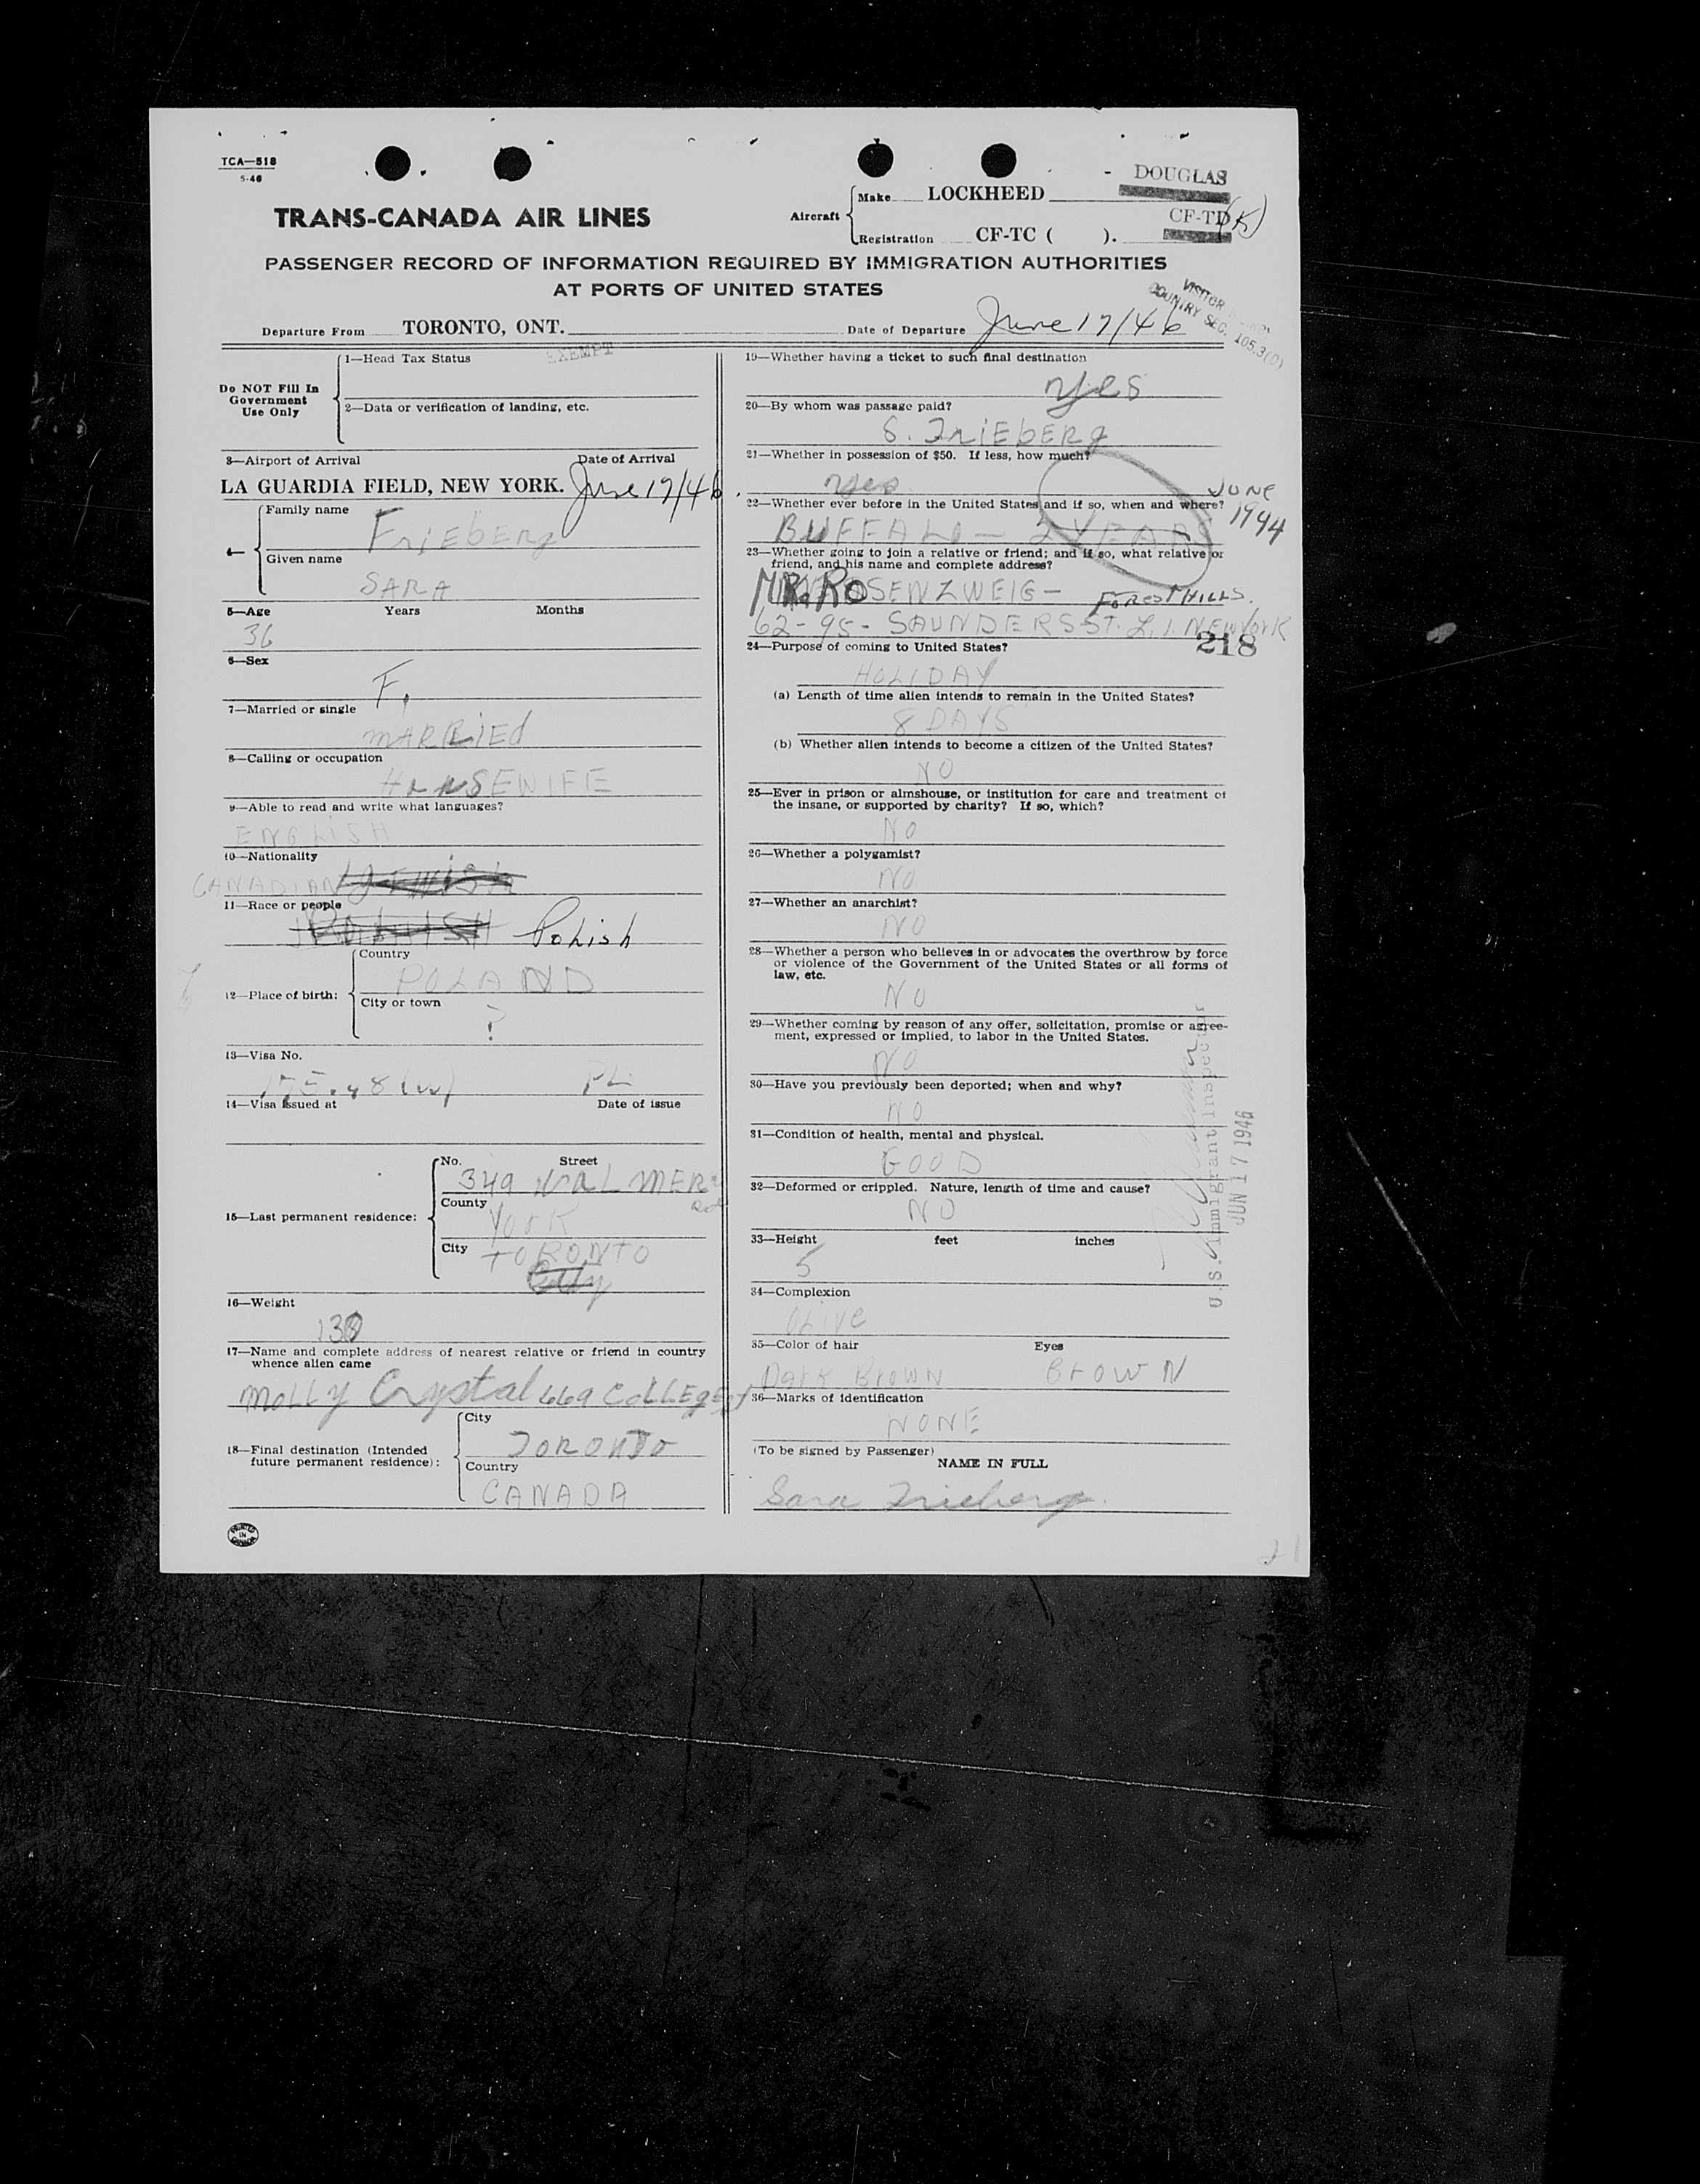 TCA—518
5-46
DOUGLAS
Make LOCKHEED
TRANS-CANADA AIR LINES
Aircraft
CF-TD (K)
Registration CF-TC ( ).
PASSENGER RECORD OF INFORMATION REQUIRED BY IMMIGRATION AUTHORITIES
AT PORTS OF UNITED STATES
VISITOR
COUNTRY SEC. 105.3(0)
Departure From TORONTO, ONT. Date of Departure June 17/46
Do NOT Fill In
Government
Use Only
1—Head Tax Status EXEMPT
2—Data or verification of landing, etc.
3—Airport of Arrival Date of Arrival
LA GUARDIA FIELD, NEW YORK. June 17/46.
4— Family name
FriEbErg
Given name
SARA
5—Age Years Months
36
6—Sex
F.
7—Married or single
mARRiEd
8—Calling or occupation
HOUSEWIFE
9—Able to read and write what languages?
ENGLISH
10—Nationality
CANADIAN JEWISH
11—Race or people
POLISH Polish
12—Place of birth:
Country
POLAND
City or town
?
13—Visa No.
175.48 (w) PL
14—Visa Issued at Date of issue
15—Last permanent residence:
No. Street
349 WALMER
Rd
County
York
City
TORONTO
16—Weight
130
17—Name and complete address of nearest relative or friend in country
whence alien came
MOLLY Crystal 669 CoLLEgE St
18—Final destination (Intended
future permanent residence):
City
TORONTO
Country
CANADA
PRINTED
IN
CANADA
19—Whether having a ticket to such final destination
yes
20—By whom was passage paid?
S. FriEbERg
21—Whether in possession of $50. If less, how much?
yes
22—Whether ever before in the United States and if so, when and where?
JUNE
1944
BUFFALO — 2 YEARS
23—Whether going to join a relative or friend; and if so, what relative or
friend, and his name and complete address?
MR. ROSENZWEIG — FOREST HILLS.
62-95- SAUNDERS ST. L.I. NEW YORK
218
24—Purpose of coming to United States?
HOLIDAY
(a) Length of time alien intends to remain in the United States?
8 DAYS
(b) Whether alien intends to become a citizen of the United States?
NO
25—Ever in prison or almshouse, or institution for care and treatment of
the insane, or supported by charity? If so, which?
NO
26—Whether a polygamist?
NO
27—Whether an anarchist?
NO
28—Whether a person who believes in or advocates the overthrow by force
or violence of the Government of the United States or all forms of
law, etc.
NO
29—Whether coming by reason of any offer, solicitation, promise or agree-
ment, expressed or implied, to labor in the United States.
NO
30—Have you previously been deported; when and why?
NO
31—Condition of health, mental and physical.
GOOD
32—Deformed or crippled. Nature, length of time and cause?
NO
33—Height feet inches
5
34—Complexion
OLIVE
35—Color of hair Eyes
Dark Brown BrowN
36—Marks of identification
NONE
(To be signed by Passenger)
NAME IN FULL
Sara Frieberg
U.S. Immigrant Inspector
JUN 17 1946
21